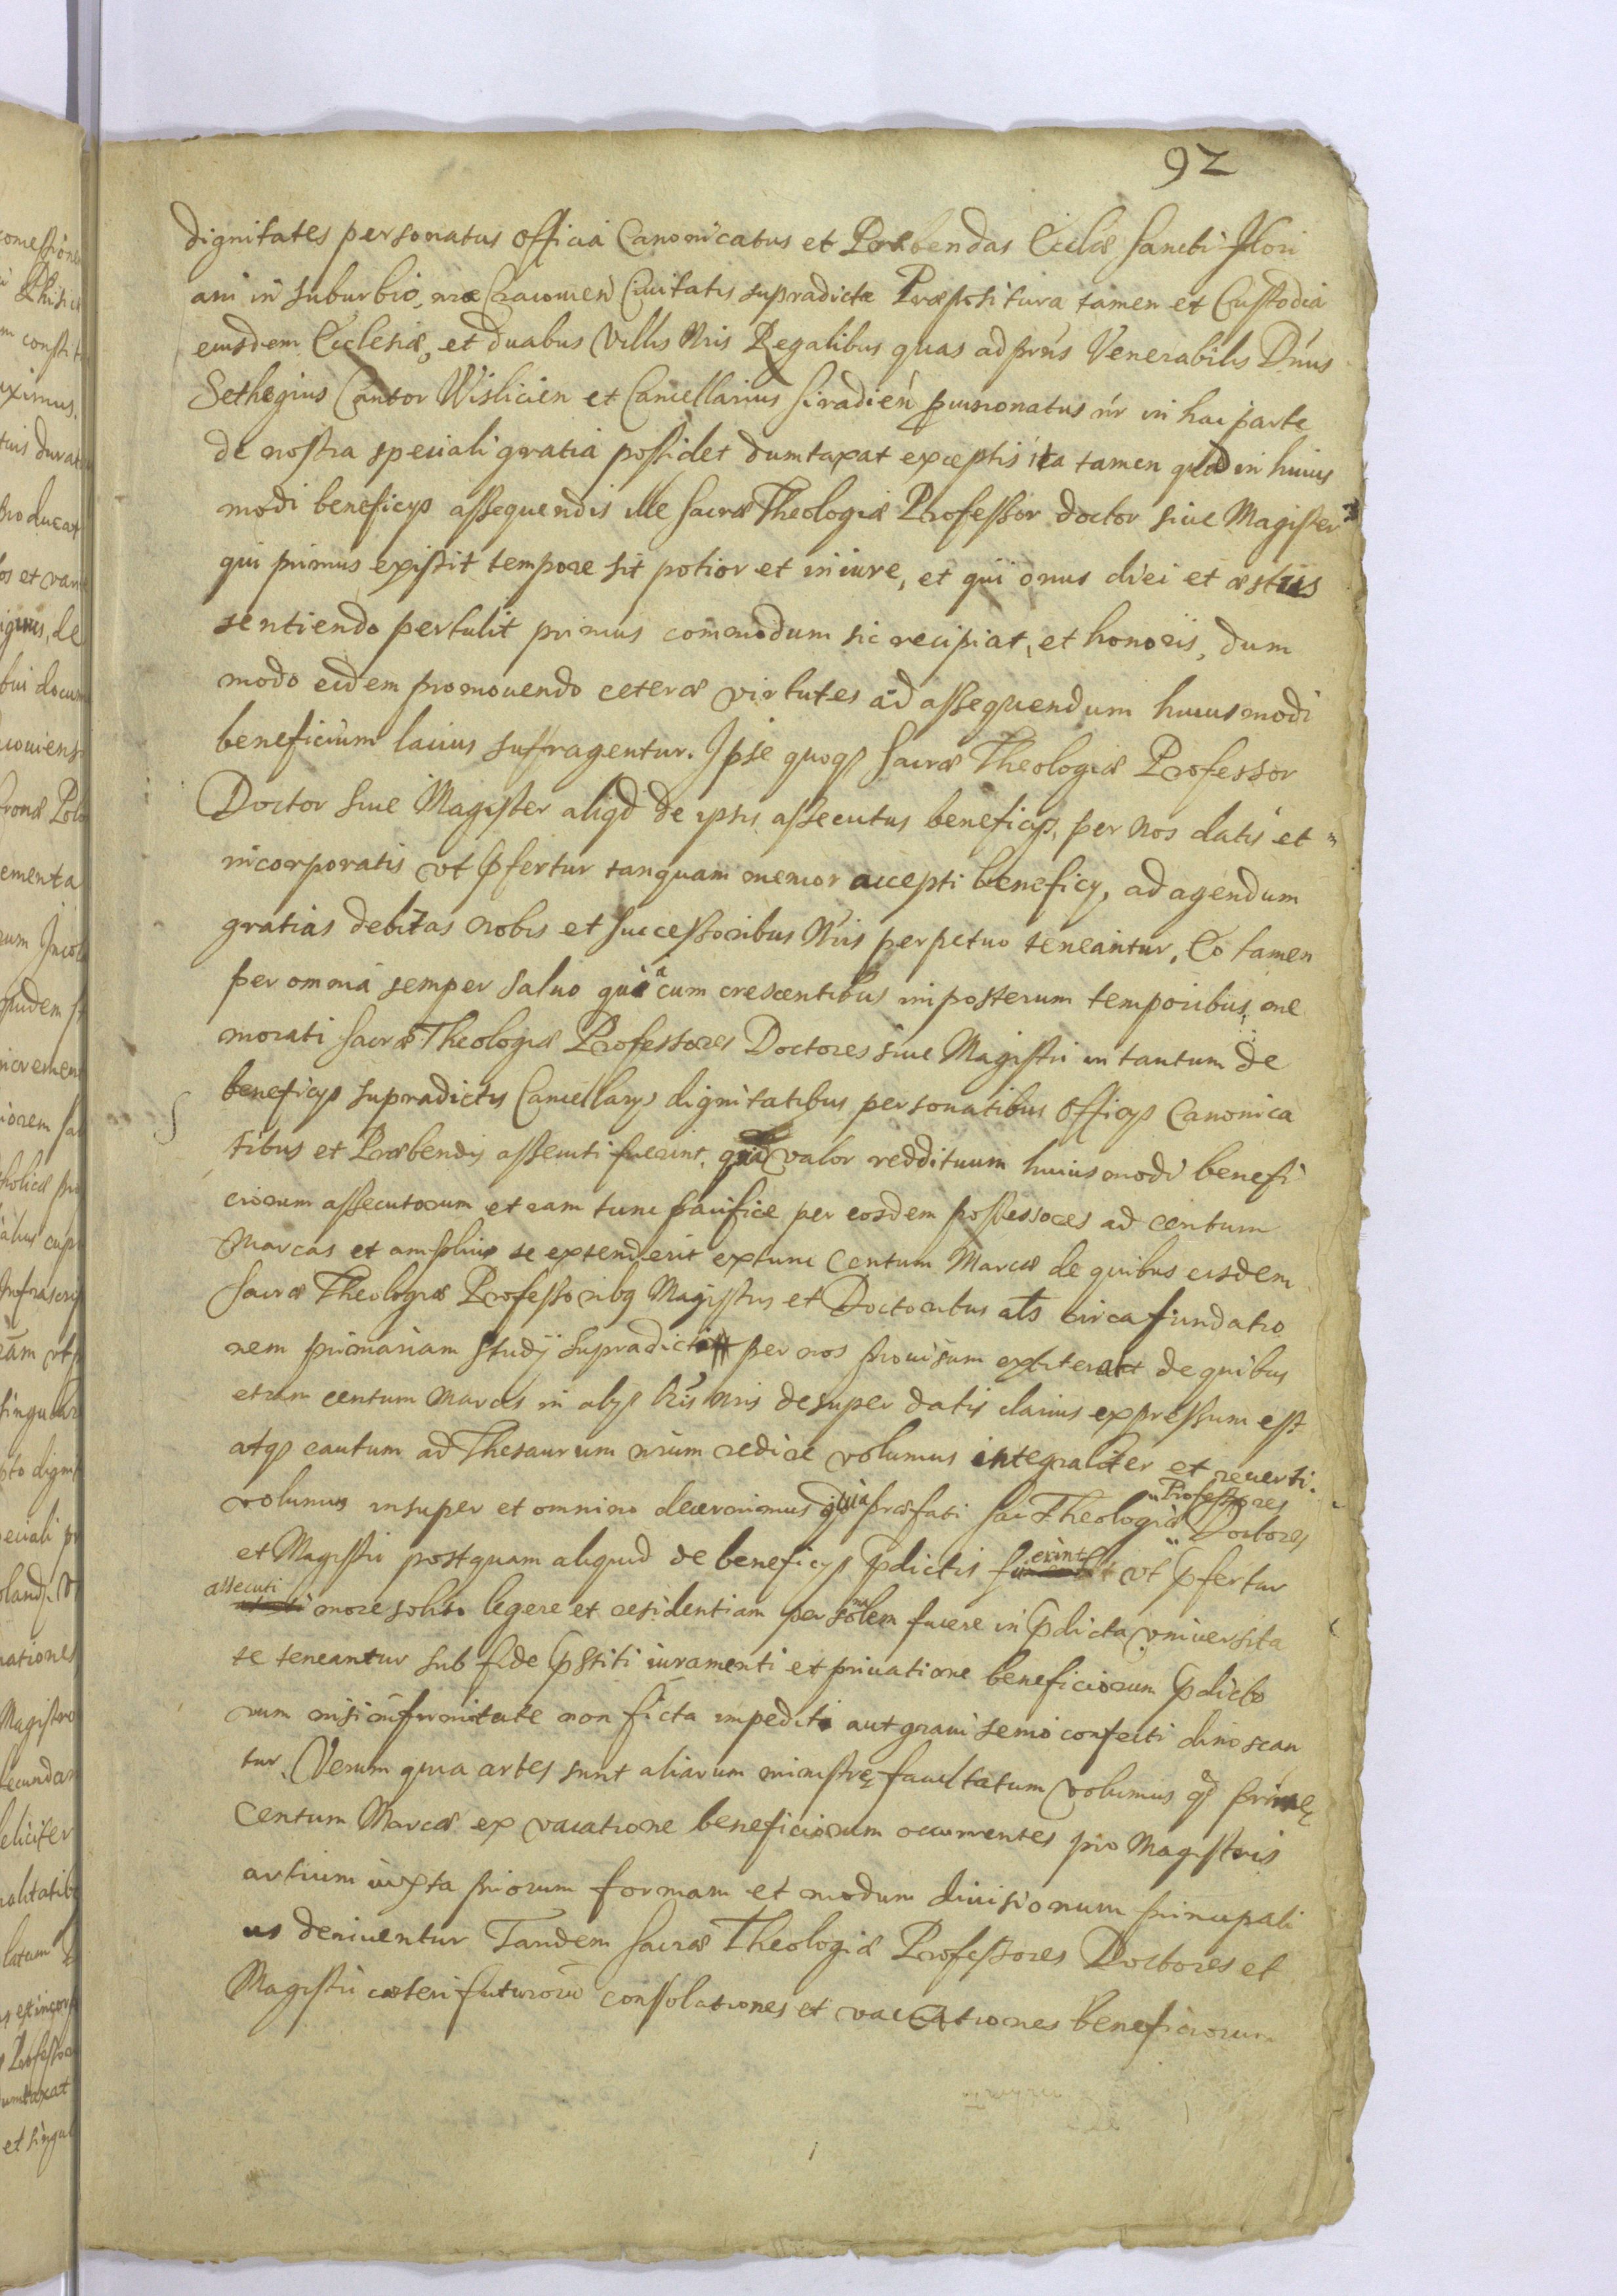 92
dignitates personatus officia Canonicatus et Præbendas Ecclæ Sancti Flori
ani in suburbio, nræ Cracouien Ciuitatis supradictæ Præpositura tamen et Custodia
eiusdem Ecclesiæ, et duabus Villis Nris Regalibus quas ad prńs Venerabilis Dńus
Sethegius Cantor Wislicien et Cancellarius Siradień nŕ in hac parte
de nostra speciali gratia possidet dumtaxat exceptis ita tamen quod in huius
modi beneficys assequendis ille Sacræ Theologiæ Professor doctor siue Magister
qui primus extitit tempore sit potior et in iure, et qui onus diei et æstus
sentiendo pertulit primus commodum sic recipiat, et honoris, dum
modo eidem promouendo ceteræ virtutes ad assequendum huiusmodi
beneficium lacius suffragentur. Ipse quoqȝ Sacræ Theologiæ Professor
Doctor siue Magister aliqd de ipsis assecutus beneficys, per nos datis et
incorporatis vt pfertur tanquam memor accepti beneficy, ad agendum
gratias debitas nobis et Successoribus Nris perpetuo teneantur, Eo tamen
per omnia semper saluo quia cum crescentibus imposterum temporibus, me
morati Sacræ Theologiæ Professores Doctores siue Magistri in tantum de
beneficys supradictis Cancellarys dignitatibus personatibus Officys Canonica
tibus et Præbendis assecuti fuerint, quod valor reddituum huiusmodi benefi
ciorum assecutorum etiam tunc pacifice per eosdem possessores ad centum
Marcas et amplius se extenderit extunc Centum Marcæ de quibus eisdem
Sacræ Theologiæ Professoribȝ Magistris et Doctoribus als circa fundatio
nem primariam Studij supradicti per nos prouisum extiterat de quibus
etiam centum marcis in alys lris nris desuper datis clarius expressum est
atqȝ cautum ad Thesaurum nrum redire volumus integraliter et reuerti.
volumus insuper et omnino decernimus quia præfati Sac Theologiæ Professores Doctores
et Magistri postquam aliquid de beneficys pdictis fuerint vt pfertur
assecuti more solito legere et residentiam personalem facere in pdicta vniuersita
te teneantur sub fide pstiti iuramenti et priuatione beneficiorum pdicto
rum nisi infirmitate non ficta impediti aut graui senio confecti dinoscan
tur. Verum quia artes sunt aliarum ministrę facultatum volumus qȝ primę
Centum Marcæ ex vacatione beneficiorum occurrentes pro Magistris
artium iuxta priorum formam et modum diuisionum principali
us deriuentur Tandem Sacræ Theologiæ Professores Doctores et
Magistri cæteri futurorū consolationes et vacationes beneficiorum